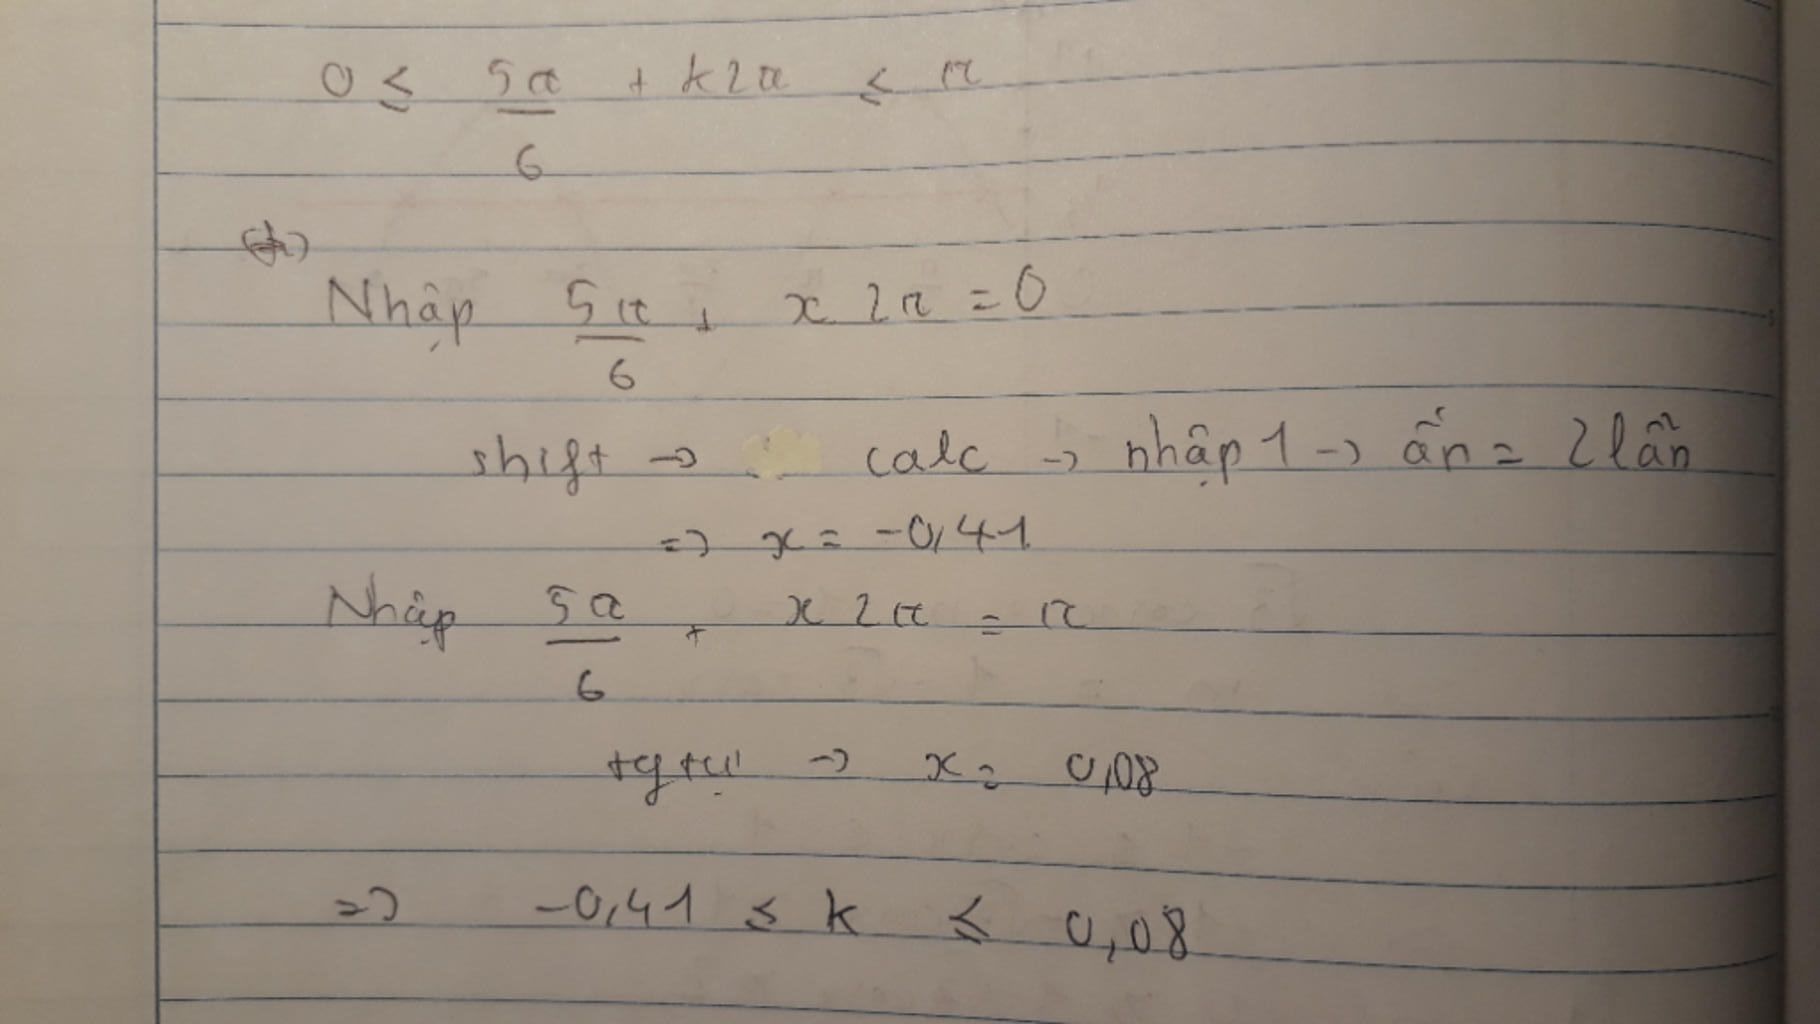 0 ≤ 5π/6 + k2π ≤ π
Nhập 5π/6 + x2π = 0
shift → calc → nhập 1 → ấn = 2 lần
=> x = -0,41
Nhập 5π/6 + x2π = π
tg tự → x = 0,08
=> -0,41 ≤ k ≤ 0,08